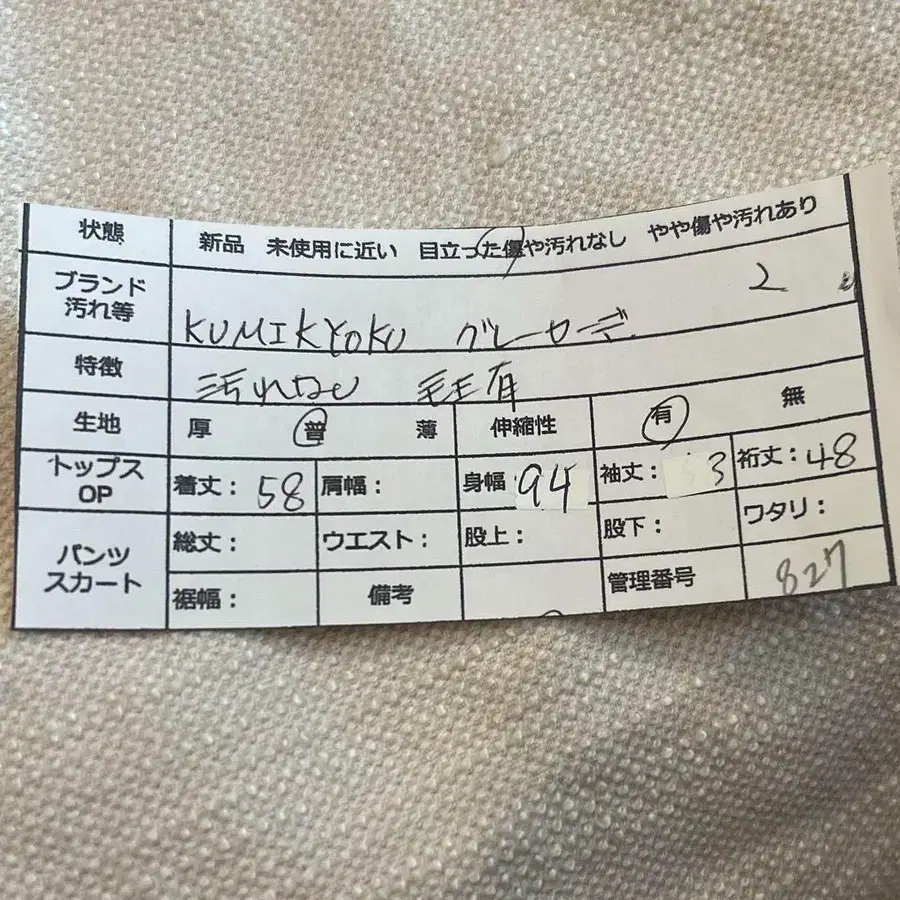 状態 新品 未使用に近い 目立った傷や汚れなし やや傷や汚れあり
ブランド 汚れ等 KUMIKYOKU グレーカーデ 2
特徴 汚れなし 毛玉有
生地 厚 普 薄 伸縮性 有 無
トップス OP 着丈：58 肩幅： 身幅 94 袖丈： 3 裄丈：48
パンツ スカート 総丈： ウエスト： 股上： 股下： ワタリ：
裾幅： 備考 管理番号 827